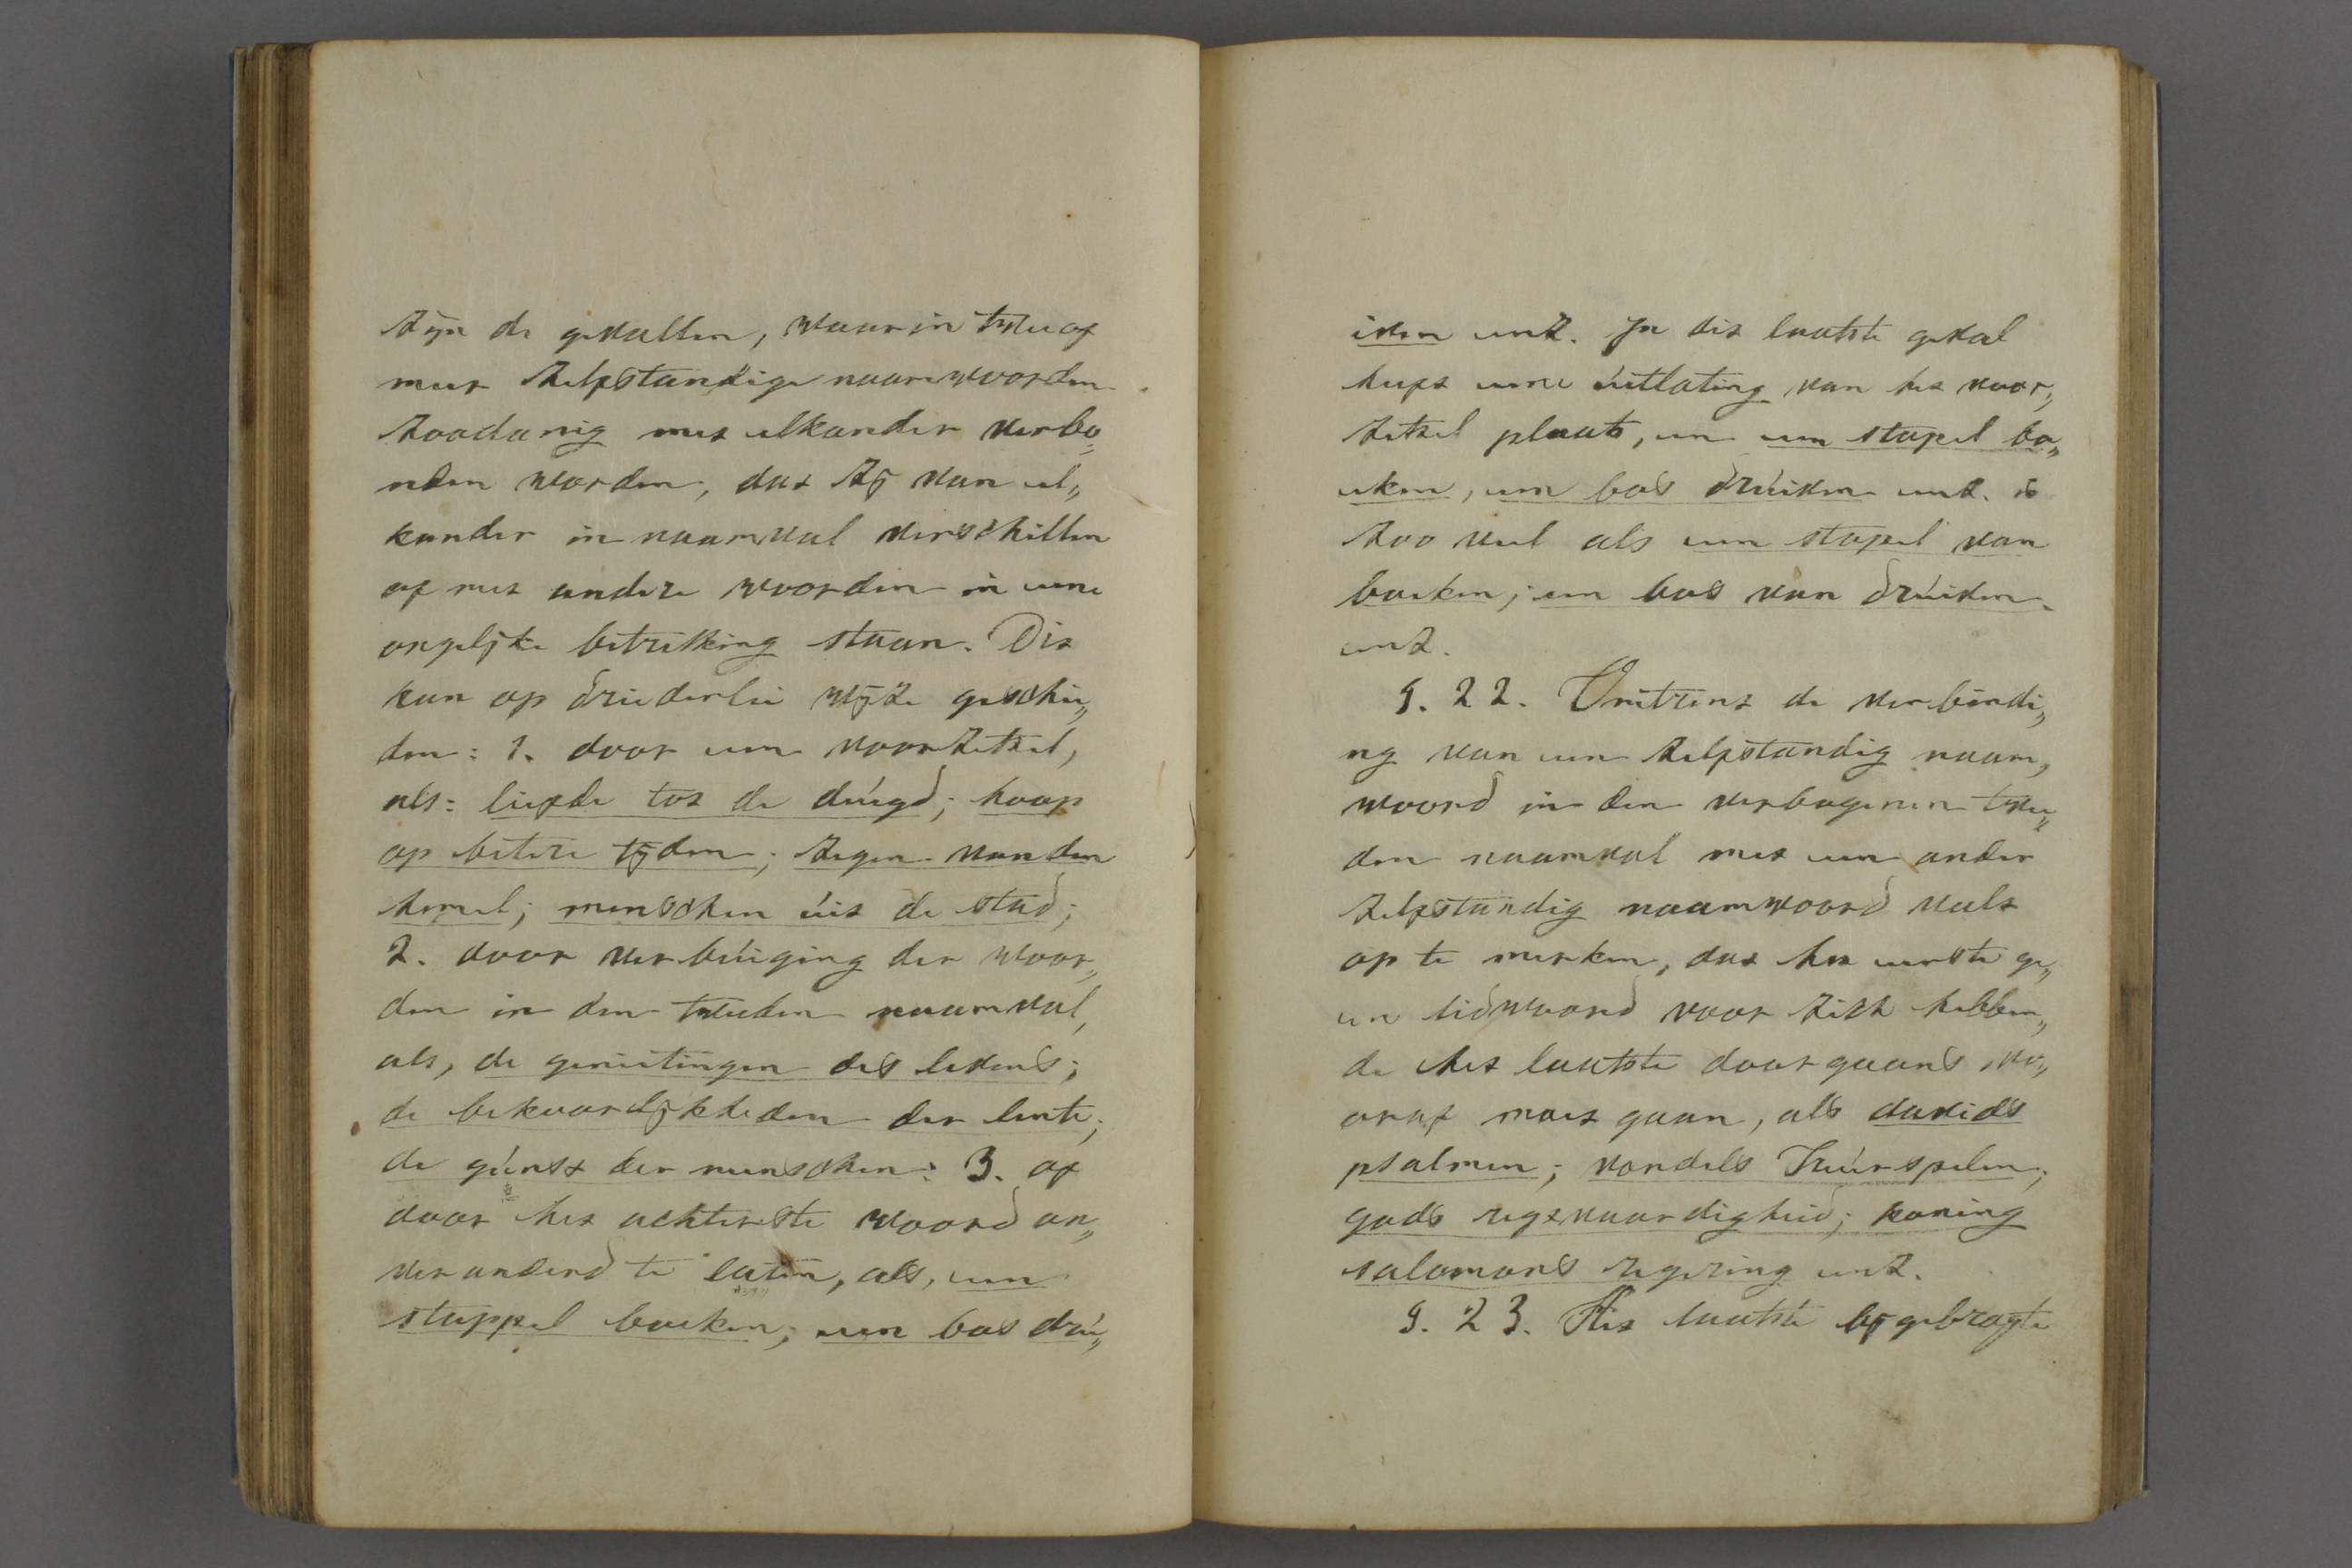 zijn de gevallen, waarin twee of
meer zelfstandige naamwoorden
zoodanig met elkander verbo„
nden worden, dat zij van el„
kander in naamval verschillen
of met andere woorden in eene
ongelijke betrekking staan. Dit
kan op driederlei wijze geschie„
den: 1. door een voorzetsel,
als: liefde tot de deúgd; hoop
op betere tijden; zegen van den
hemel; menschen úit de stad;
2. door verbúiging der woor„
den in den tweeden naamval,
als, de genietingen des levens;
de bekoorlijkheden der lente;
de gúnst der menschen: 3. of
door het achterste woord on„
veranderd te laten, als, een
stappel boeken; een bos drú„
iven enz. In dit laatste geval
heeft eene úitlating van het voor„
zetsel plaats, en een stapel bo„
eken, een bos drúiven enz. is
zoo veel als een stapel van
boeken; een bos van drúiven
enz.
§. 22. Omtrent de verbindi„
ng van een zelfstandig naam„
woord in den verbogenen twee„
den naamval met een ander
zelfstandig naamwoord valt
op te merken, dat het eerste ge„
en lidwoord voor zich hebben„
de het laatste doorgaans vo„
oraf moet gaan, als davids
psalmen; vondels Treúrspelen;
gods regtvaardigheid; koning
salomons regering enz.
§. 23. Het laatste bijgebragte